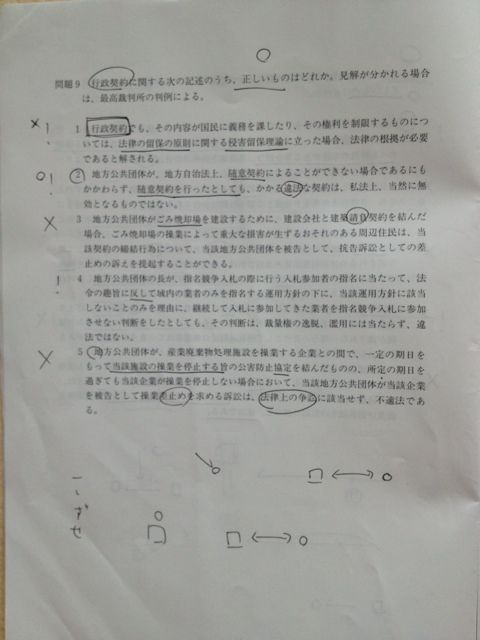 問題9 行政契約に関する次の記述のうち、正しいものはどれか。見解が分かれる場合
は、最高裁判所の判例による。
×! 1 行政契約でも、その内容が国民に義務を課したり、その権利を制限するものにつ
いては、法律の留保の原則に関する侵害留保理論に立った場合、法律の根拠が必要
であると解される。
○! 2 地方公共団体が、地方自治法上、随意契約によることができない場合であるにも
かかわらず、随意契約を行ったとしても、かかる違法な契約は、私法上、当然に無
効となるものではない。
× 3 地方公共団体がごみ焼却場を建設するために、建設会社と建築請負契約を結んだ
場合、ごみ焼却場の操業によって重大な損害が生ずるおそれのある周辺住民は、当
該契約の締結行為について、当該地方公共団体を被告として、抗告訴訟としての差
止めの訴えを提起することができる。
! 4 地方公共団体の長が、指名競争入札の際に行う入札参加者の指名に当たって、法
令の趣旨に反して域内の業者のみを指名する運用方針の下に、当該運用方針に該当
しないことのみを理由に、継続して入札に参加してきた業者を指名競争入札に参加
させない判断をしたとしても、その判断は、裁量権の逸脱、濫用には当たらず、違
法ではない。
× 5 地方公共団体が、産業廃棄物処理施設を操業する企業との間で、一定の期日を
もって当該施設の操業を停止する旨の公害防止協定を結んだものの、所定の期日を
過ぎても当該企業が操業を停止しない場合において、当該地方公共団体が当該企業
を被告として操業差止めを求める訴訟は、法律上の争訟に該当せず、不適法であ
る。